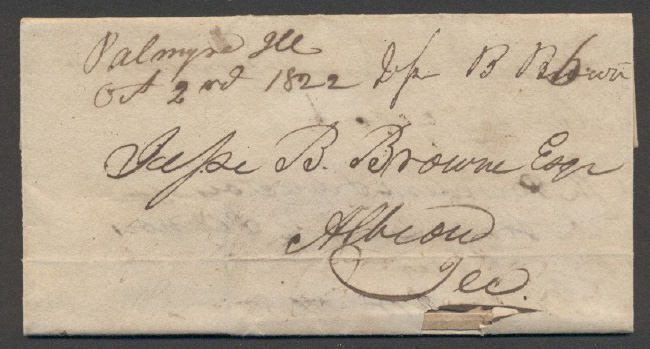 Palmyra Ill
Oct 2nd 1822 B Brown 6
Jesse B. Browne Esqr
Albion
Ill.